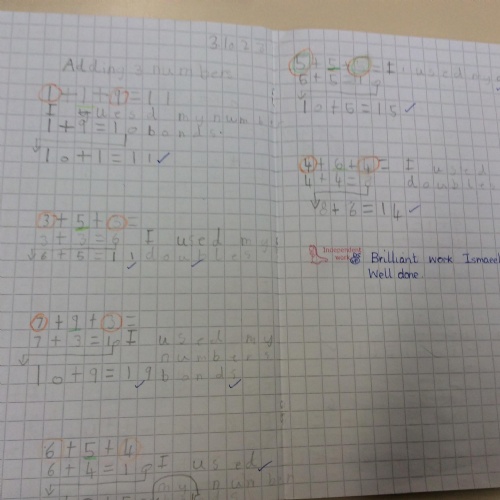 31022
Adding 3 numbers
1+1+9=11
I used my number
1+9=10 bonds
10+1=11
3+5+3=
3+3=6 I used my
6+5=11 doubles
7+9+3=
7+3=10 I used my
numbers
10+9=19 bonds
6+5+4
6+4=10 I used
my number
I used my
10+5=15
4+6+4= I used
4+4=8 doubles
8+6=14
Independent
work
Brilliant work Ismaeel
Well done.